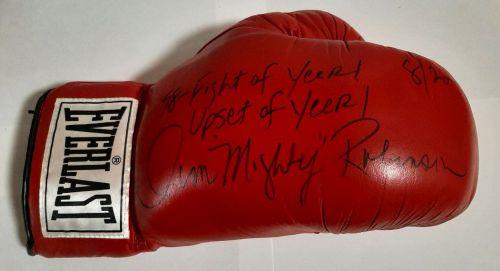 EVERLAST
®
78-Fight of Year!
Upset of Year!
8/20
Jim "Mighty" Robinson